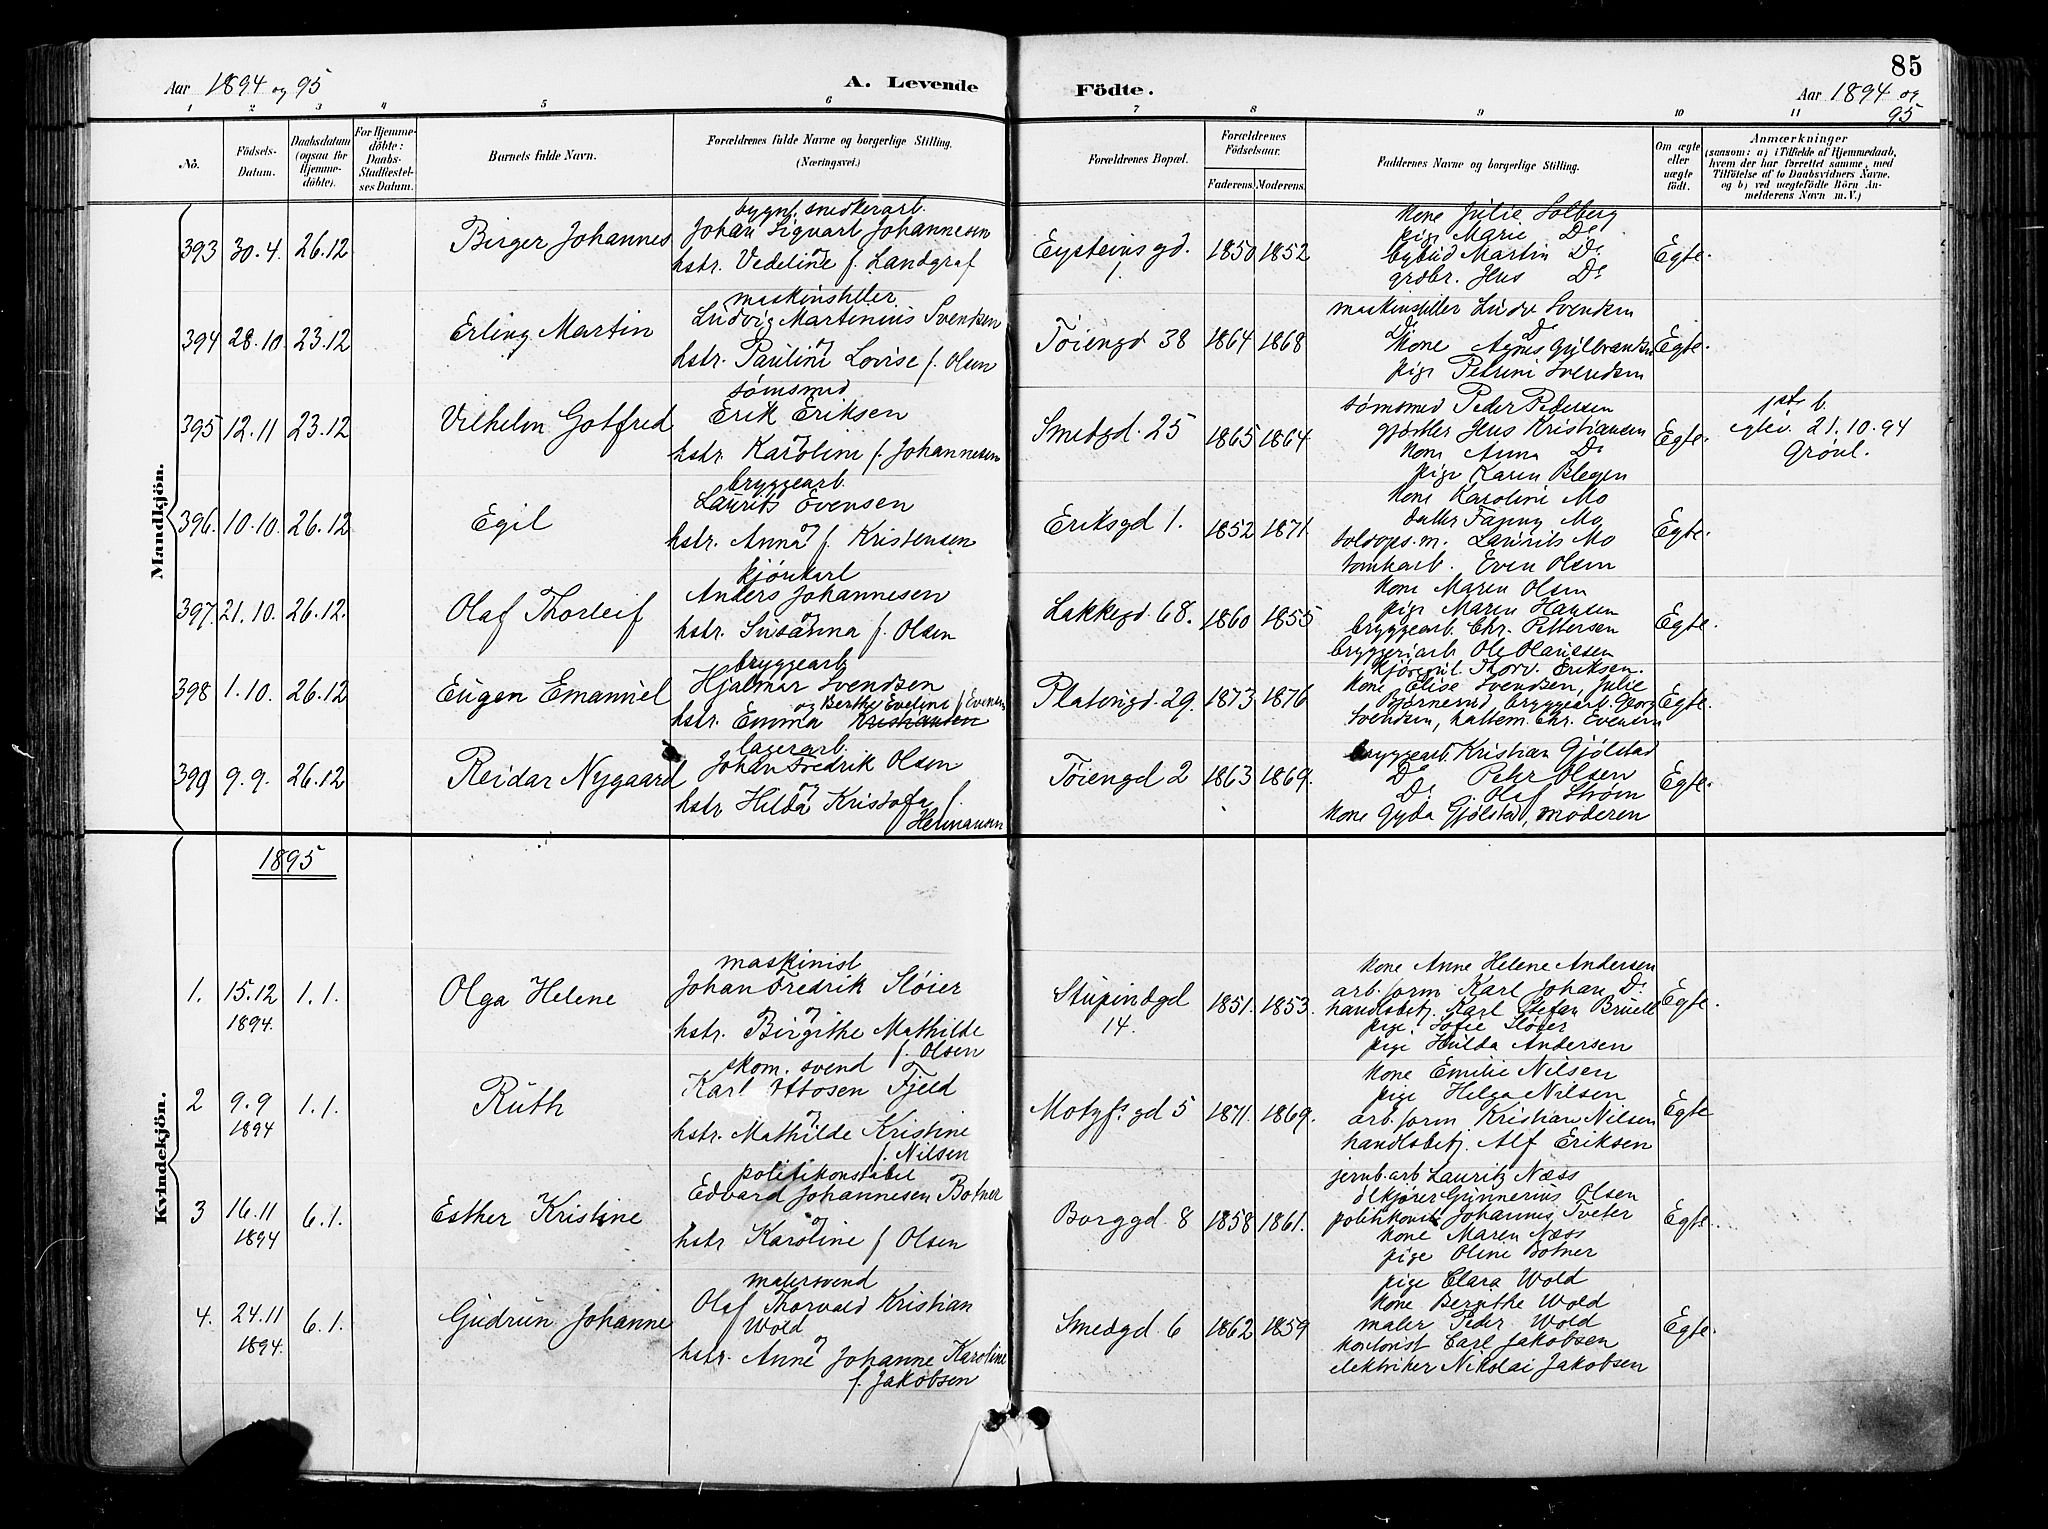 Aar 1894 og 95
A. Levende
Födte.
Aar 1894 og 95
85
1 2 3 4 5 6 7 8 9 10 11
No.
Födsels-Datum.
Daabsdatum (ogsaa for Hjemmedöbte).
For Hjemmedöbte: Daabs-Stadfæstelses Datum.
Barnets fulde Navn.
Forældrenes fulde Navne og borgerlige Stilling. (Næringsvei.)
Forældrenes Bopæl.
Forældrenes Födselsaar.
Faderens. Moderens.
Faddernes Navne og borgerlige Stilling.
Om ægte eller uægte födt.
Anmærkninger
(saasom: a) i Tilfælde af Hjemmedaab, hvem der har forrettet samme, med Tilföielse af to Daabsvidners Navne. og b) ved uægtefödte Börn Anmelderens Navn m.V.)
Mandkjön.
393 30.4. 26.12 Birger Johannes
bygn. snedkerarb.
Johan Sigvart Johannesen
og
hstr. Vedeline f. Landgraf
Eysteinsgd. 1850 1852
kone Julie Solberg
pige Marie Do
bybud Martin Do
grosbr. Jens Do
Egte.
394 28.10. 23.12 Erling Martin
maskinstiller
Ludvig Martinius Svenksen
og
hstr. Pauline Lovise f. Olsen
Töiengd 38 1864 1868
maskinstiller Ludv Svendsen
Do Do
kone Agnes Gulbrandsen
pige Petrine Svendsen
Egte.
395 12.11 23.12 Vilhelm Gotfred
sømsmed
Erik Eriksen
og
hstr. Karoline f. Johannesen
Smedgd. 25 1865 1864
sømsmed Peder Pedersen
gjørtler Jens Kristiansen
kone Anna Do
pige Karen Blegen
Egte.
1ste b.
eglv. 21.10.94
Grønl.
396. 10.10. 26.12 Egil
bryggearb.
Laurits Evensen
og
hstr. Anna f. Kristensen
Eriksgd 1. 1852 1871.
kone Karoline Mo
datter Fanny Mo
toldops.m. Laurits Mo
tomtearb. Even Olsen
Egte.
397. 21.10. 26.12. Olaf Thorleif
kjørekarl
Anders Johannesen
og
hstr. Susanna f. Olsen
Lakkegd. 68. 1860 1855
kone Maren Olsen
pige Maren Hansen
bryggearb. Chr. Pettersen
bryggeriarb Ole Olausen
Egte.
398 1.10. 26.12 Eugen Emanuel
bryggearb
Hjalmar Svendsen
og Berthe Eveline f. Evensen
hstr. Emma Kristiansen
Platougd. 29. 1873 1876
kjøregut. Thorv. Eriksen.
kone Elise Svendsen, Julie
Bjørnerud bryggearb. Georg
Svendsen, hattem. Chr. Evensen
Egte.
399 9.9. 26.12 Reidar Nygaard
lagerarb.
Johan Fredrik Olsen
og
hstr Hilda Kristofa f.
Hermansen
Töiengd 2 1863 1869.
bryggearb Kristian Gjølstad
Do Peter Olsen
Do Olaf Strøm
kone Gyda Gjølstad, moderen
Egte.
Kvindekjön.
1895
1. 15.12 1894. 1.1. Olga Helene
maskinist
Johan Fredrik Sløier
og
hstr. Birgithe Mathilde
f. Olsen
Stupindgd 14. 1851. 1853.
kone Anne Helene Andersen
arb.form Karl Johan Do
handlsbetj. Karl Stefan Bruell
pige Sofie Sløier
pige Hulda Andersen
Egte.
2 9.9 1894 1.1. Ruth
skom. svend
Karl Ottosen Fjeld
og
hstr. Mathilde Kristine
f. Nilsen
Motzfs.gd 5 1871. 1869.
kone Emilie Nilsen
pige Helga Nilsen
arb.form Kristian Nilsen
handlsbetj. Alf Eriksen
Egte
3 16.11 1894 6.1. Esther Kristine
politikonstabel
Edvard Johannesen Botner
og
hstr Karoline f Olsen
Borggd. 8 1858 1861.
jernb.arb Lauritz Næss
ølkjører Gunnerius Olsen
politikonst. Johannes Tveter
kone Maren Næss
pige Oline Botner
Egte.
4. 24.11 1894. 6.1. Gudrun Johanne
malersvend
Olaf Thorvald Kristian
Wold
og
hstr. Anne Johanne Karoline
f. Jakobsen
Smedgd. 6 1862 1859
pige Clara Wold
kone Bergithe Wold
maler Peder Wold
kontorist Carl Jakobsen
elektriker Nikolai Jakobsen
Egte.